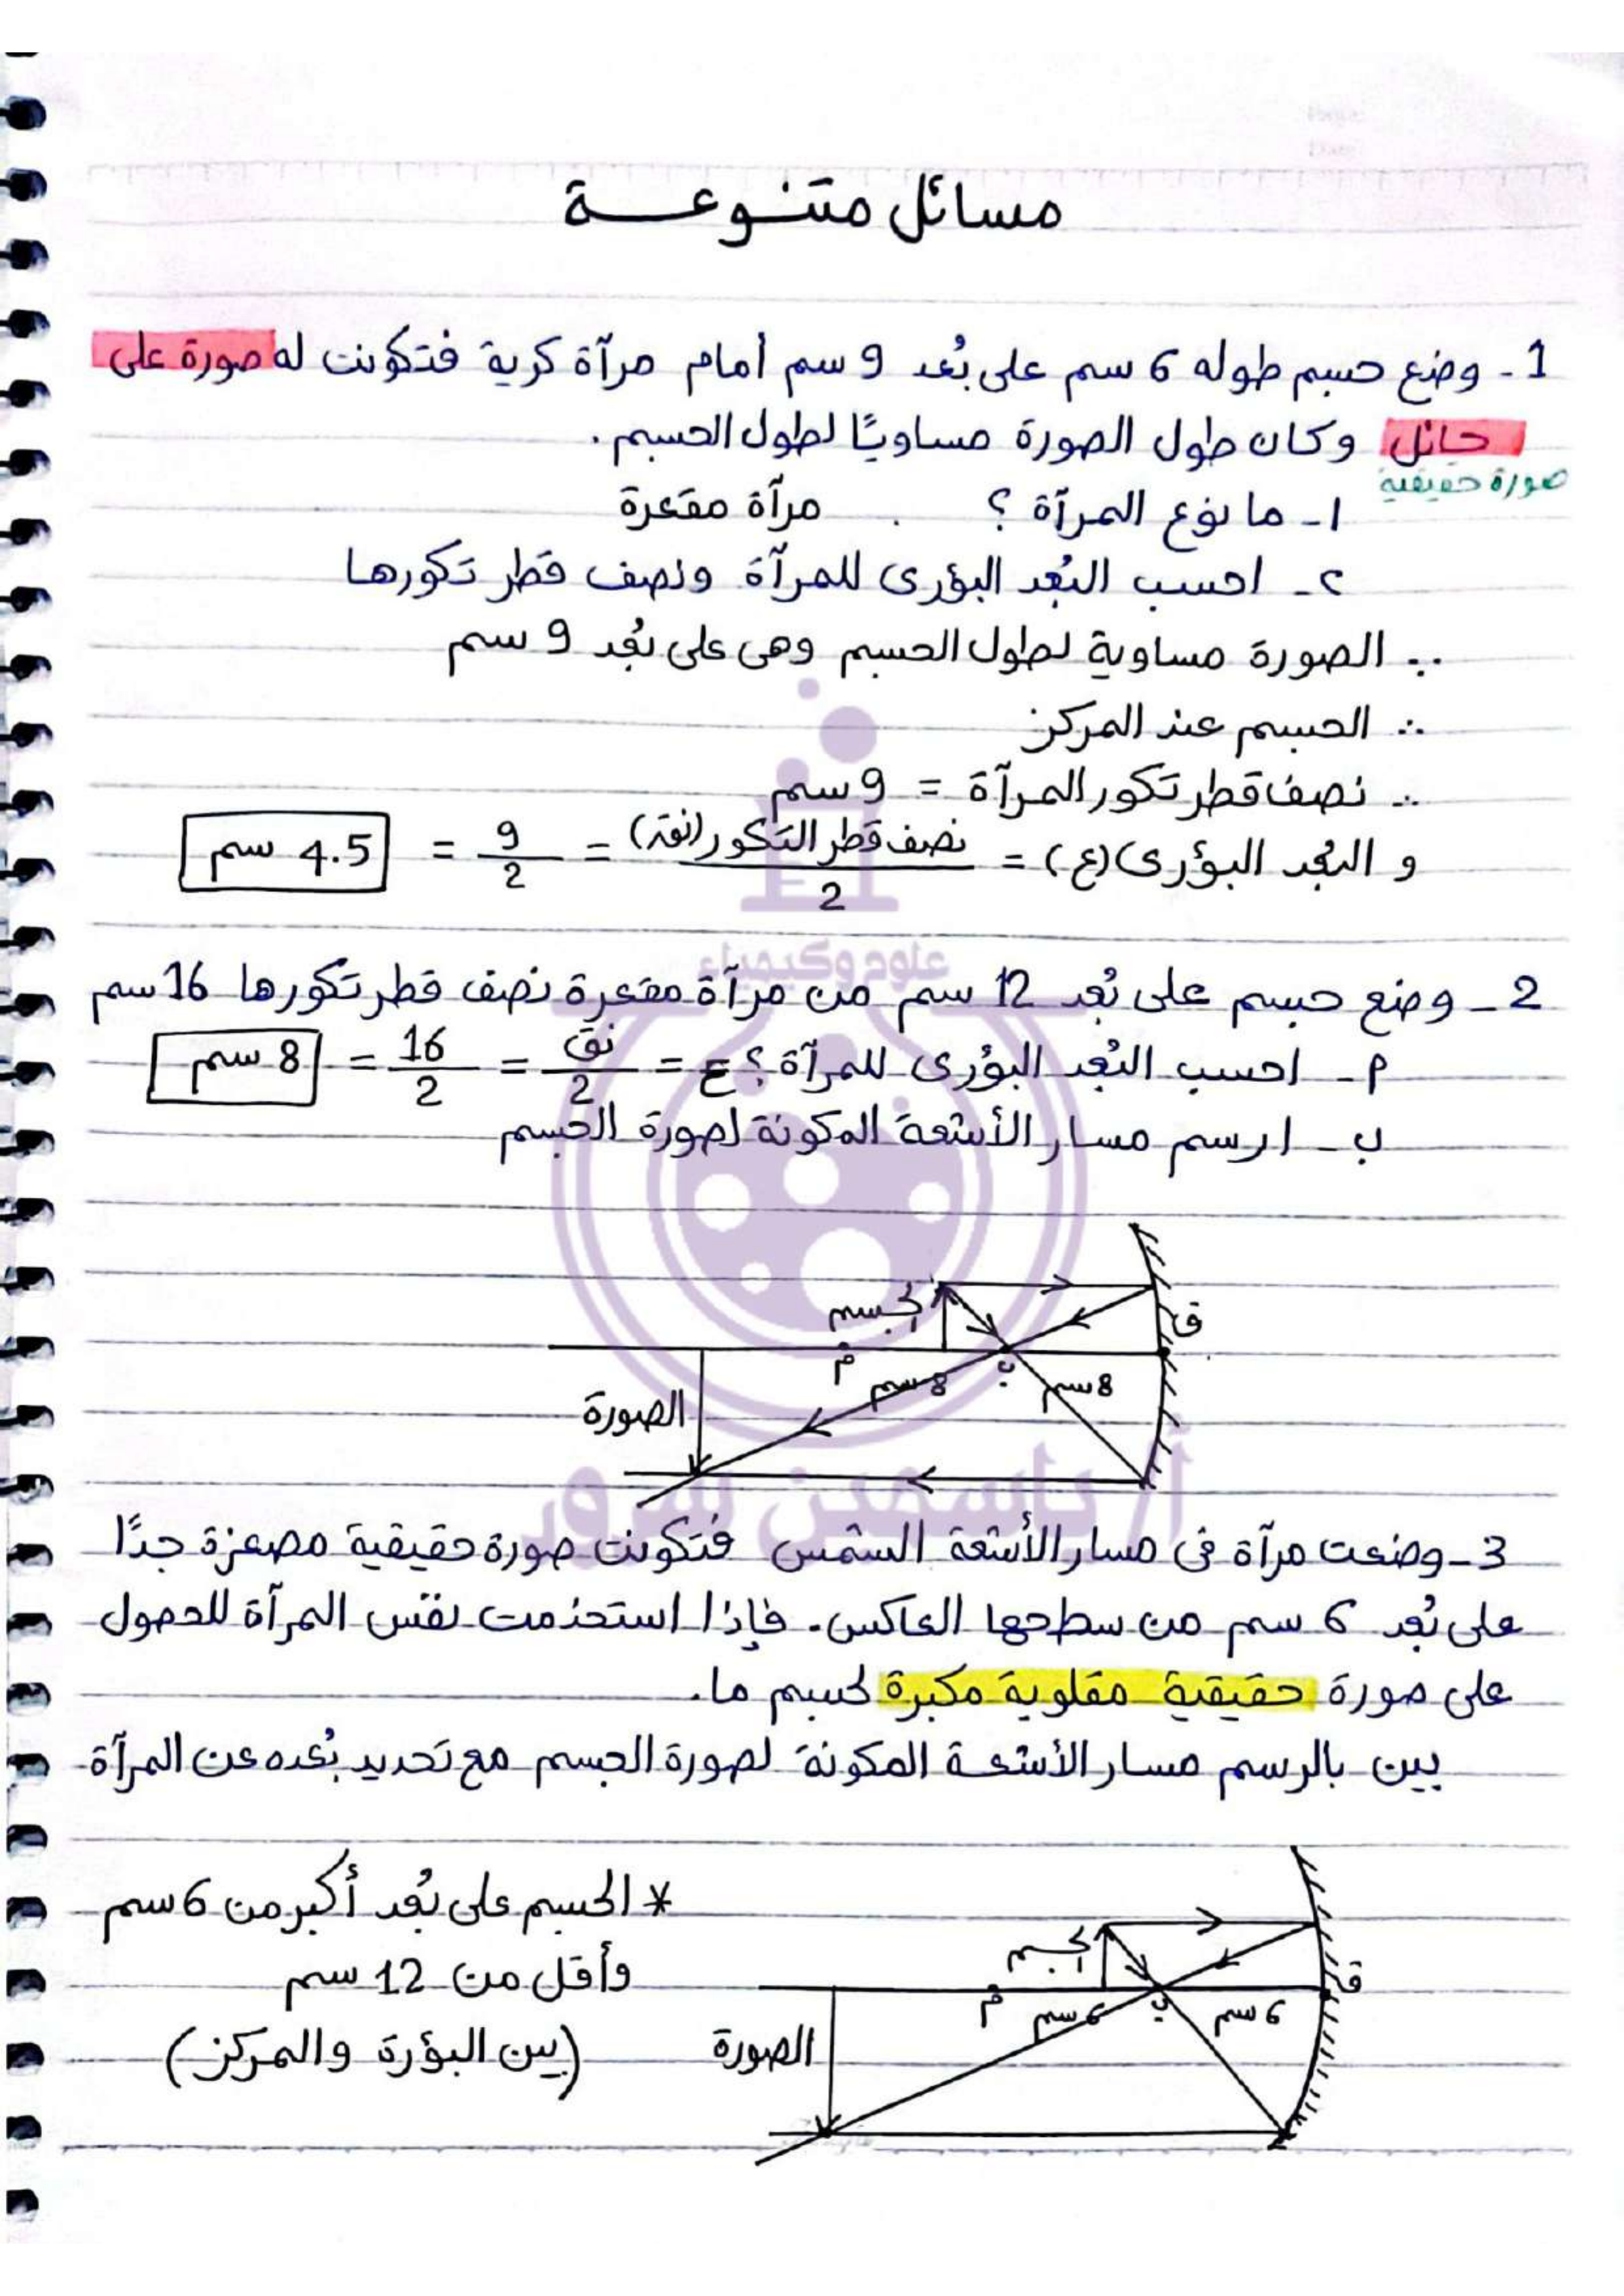 مسائل متنوعة
1 - وضع جسم طوله 6 سم على بُعد 9 سم أمام مرآة كرية فتكونت له صورة على
حائل وكان طول الصورة مساويًا لطول الجسم.
صورة حقيقية
١- ما نوع المرآة ؟ مرآة مقعرة
٢- احسب البُعد البؤرى للمرآة ونصف قطر تكورها
∵ الصورة مساوية لطول الجسم وهى على بُعد 9 سم
∴ الجسم عند المركز
∴ نصف قطر تكور المرآة = 9 سم
و البُعد البؤرى (ع) = نصف قطر التكور (نق) / 2 = 9 / 2 = 4.5 سم
علوم وكيمياء
2 - وضع جسم على بُعد 12 سم من مرآة مقعرة نصف قطر تكورها 16 سم
م - احسب البُعد البؤرى للمرآة ؟ ع = نق / 2 = 16 / 2 = 8 سم
ب - ارسم مسار الأشعة المكونة لصورة الجسم
الجسم
ق
م
8 سم
ب
8 سم
الصورة
أ/ ياسمين سرور
3 - وضعت مرآة فى مسار الأشعة الشمس فتكونت صورة حقيقية مصغرة جدًا
على بُعد 6 سم من سطحها العاكس. فإذا استخدمت نفس المرآة للحصول
على صورة حقيقية مقلوبة مكبرة لجسم ما.
بين بالرسم مسار الأشعة المكونة لصورة الجسم مع تحديد بُعده عن المرآة
* الجسم على بُعد أكبر من 6 سم
وأقل من 12 سم
(بين البؤرة والمركز)
الجسم
ق
م
6 سم
ب
6 سم
الصورة